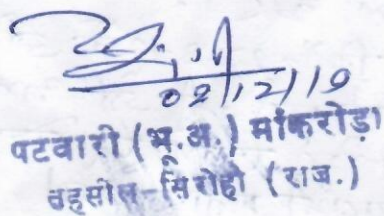 02/12/19
पटवारी (भू.अ.) मांकरोड़ा
तहसील-सिरोही (राज.)